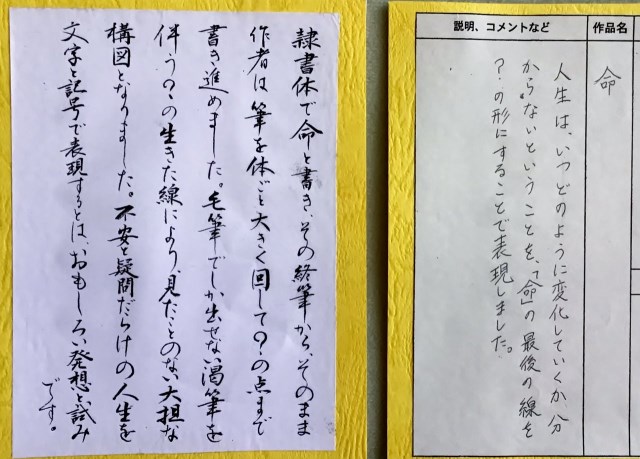 隷書体で命と書き、その終筆から、そのまま
作者は筆を体ごと大きく回して?の点まで
書き進めました。毛筆でしか出せない渇筆を
伴う?の生きた線により、見たことのない大担な
構図となりました。不安と疑問だらけの人生を
文字と記号で表現するとは、おもしろい発想と試み
です。
作品名
命
説明、コメントなど
人生は、いつどのように変化していくか分
からないということを、「命」の最後の線を
?の形にすることで表現しました。